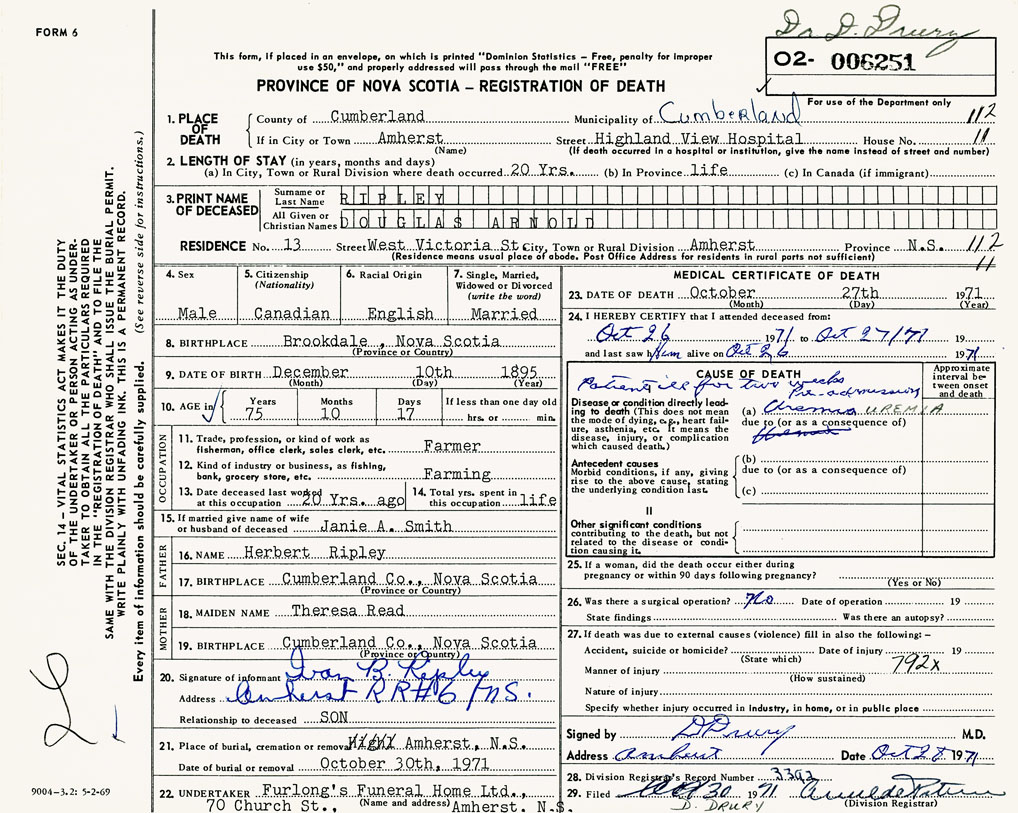 FORM 6
Dr D. Drury
02- 006251
For use of the Department only
This form, if placed in an envelope, on which is printed "Dominion Statistics – Free, penalty for improper
use $50," and properly addressed will pass through the mail "FREE"
PROVINCE OF NOVA SCOTIA – REGISTRATION OF DEATH
1. PLACE OF DEATH
County of Cumberland Municipality of Cumberland 112
If in City or Town Amherst Street Highland View Hospital House No. 11
(Name) (If death occurred in a hospital or institution, give the name instead of street and number)
2. LENGTH OF STAY (in years, months and days)
(a) In City, Town or Rural Division where death occurred 20 Yrs. (b) In Province life (c) In Canada (if immigrant)
3. PRINT NAME OF DECEASED
Surname or Last Name RIPLEY
All Given or Christian Names DOUGLAS ARNOLD
RESIDENCE No. 13 Street West Victoria St City, Town or Rural Division Amherst Province N.S. 112
(Residence means usual place of abode. Post Office Address for residents in rural parts not sufficient) 11
4. Sex
Male
5. Citizenship
(Nationality)
Canadian
6. Racial Origin
English
7. Single, Married,
Widowed or Divorced
(write the word)
Married
8. BIRTHPLACE Brookdale, Nova Scotia
(Province or Country)
9. DATE OF BIRTH December 10th 1895
(Month) (Day) (Year)
10. AGE in
Years Months Days If less than one day old
75 10 17 hrs. or min.
OCCUPATION
11. Trade, profession, or kind of work as
fisherman, office clerk, sales clerk, etc. Farmer
12. Kind of industry or business, as fishing,
bank, grocery store, etc. Farming
13. Date deceased last worked
at this occupation 20 Yrs. ago
14. Total yrs. spent in
this occupation life
15. If married give name of wife
or husband of deceased Janie A. Smith
FATHER
16. NAME Herbert Ripley
17. BIRTHPLACE Cumberland Co., Nova Scotia
(Province or Country)
MOTHER
18. MAIDEN NAME Theresa Read
19. BIRTHPLACE Cumberland Co., Nova Scotia
(Province or Country)
20. Signature of informant Ivan B. Ripley
Address Amherst RR#6 NS.
Relationship to deceased SON
21. Place of burial, cremation or removal Amherst, N.S.
Date of burial or removal October 30th, 1971
22. UNDERTAKER Furlong's Funeral Home Ltd.,
70 Church St., (Name and address) Amherst. N.S.
MEDICAL CERTIFICATE OF DEATH
23. DATE OF DEATH October 27th 1971
(Month) (Day) (Year)
24. I HEREBY CERTIFY that I attended deceased from:
Oct 26 1971 to Oct 27/71 19
and last saw him alive on Oct 26 1971
CAUSE OF DEATH
Approximate
interval be-
tween onset
and death
Patient ill for two weeks
Pre-admission
Disease or condition directly lead-
ing to death (This does not mean
the mode of dying, e.g., heart fail-
ure, asthenia, etc. It means the
disease, injury, or complication
which caused death.)
(a) Uremia UREMIA
due to (or as a consequence of)
Antecedent causes
Morbid conditions, if any, giving
rise to the above cause, stating
the underlying condition last.
(b)
due to (or as a consequence of)
(c)
II
Other significant conditions
contributing to the death, but not
related to the disease or condi-
tion causing it.
25. If a woman, did the death occur either during
pregnancy or within 90 days following pregnancy?
(Yes or No)
26. Was there a surgical operation? No Date of operation 19
State findings Was there an autopsy?
27. If death was due to external causes (violence) fill in also the following: –
Accident, suicide or homicide? Date of injury 19
(State which) 792x
Manner of injury
(How sustained)
Nature of injury
Specify whether injury occurred in industry, in home, or in public place
Signed by D Drury M.D.
Address Amherst Date Oct 28 1971
28. Division Registrar's Record Number 3393
29. Filed Oct 30 1971
D. DRURY (Division Registrar)
SEC. 14 – VITAL STATISTICS ACT MAKES IT THE DUTY
OF THE UNDERTAKER OR PERSON ACTING AS UNDER-
TAKER TO OBTAIN ALL THE PARTICULARS REQUIRED
IN THE "REGISTRATION OF DEATH" AND TO FILE THE
SAME WITH THE DIVISION REGISTRAR WHO SHALL ISSUE THE BURIAL PERMIT.
WRITE PLAINLY WITH UNFADING INK. THIS IS A PERMANENT RECORD.
Every item of information should be carefully supplied. (See reverse side for instructions.)
26
9004-3.2: 5-2-69